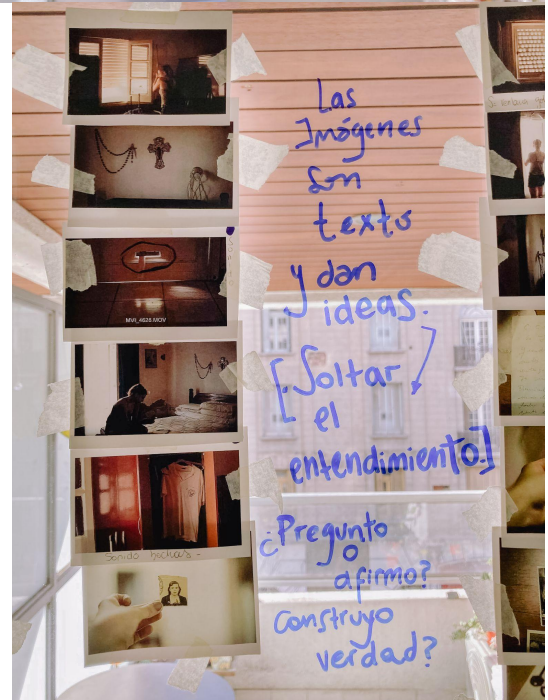 Las
Imágenes
son
texto
y dan
ideas.
[Soltar
el
entendimiento.]
¿Pregunto
o
afirmo?
Construyo
verdad?
MVI_4626.MOV
Sonido